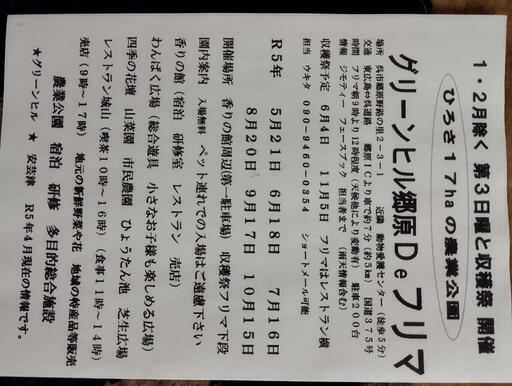 1・2月除く 第3日曜と収穫祭 開催
ひろさ17haの農業公園
グリーンヒル郷原Deフリマ
場所 呉市郷原野路の里2-3-1 近隣 動物愛護センター(徒歩5分)
交通 東広島⇔呉道路 郷原ICより車で約7分(約5km) 国道375号
時間 フリマ朝9時より12時程度(天候他により変動有) 駐車200台
情報 ジモティー フェースブック 担当者まで (雨天情報含む)
収穫祭予定 6月4日 11月5日 フリマはレストラン横
担当 ウキタ 090-9460-0354 ショートメール可能
R5年 5月21日 6月18日 7月16日
8月20日 9月17日 10月15日
開催場所 香りの館周辺(第一駐車場) 収穫祭フリマ下段
園内案内 入場無料 ペット連れでの入場はご遠慮下さい
香りの館(宿泊 研修室 レストラン 売店)
わんぱく広場(総合遊具 小さなお子様も楽しめる広場)
四季の花壇 山菜園 市民農園 ひょうたん池 芝生広場
レストラン城山(喫茶10時~16時)(食事11時~14時)
売店(9時~17時) 地元の新鮮野菜や花 地域の特産品等販売
農業公園 宿泊 研修 多目的総合施設
★グリーンヒル ★ 安芸津 R5年4月現在の情報です。